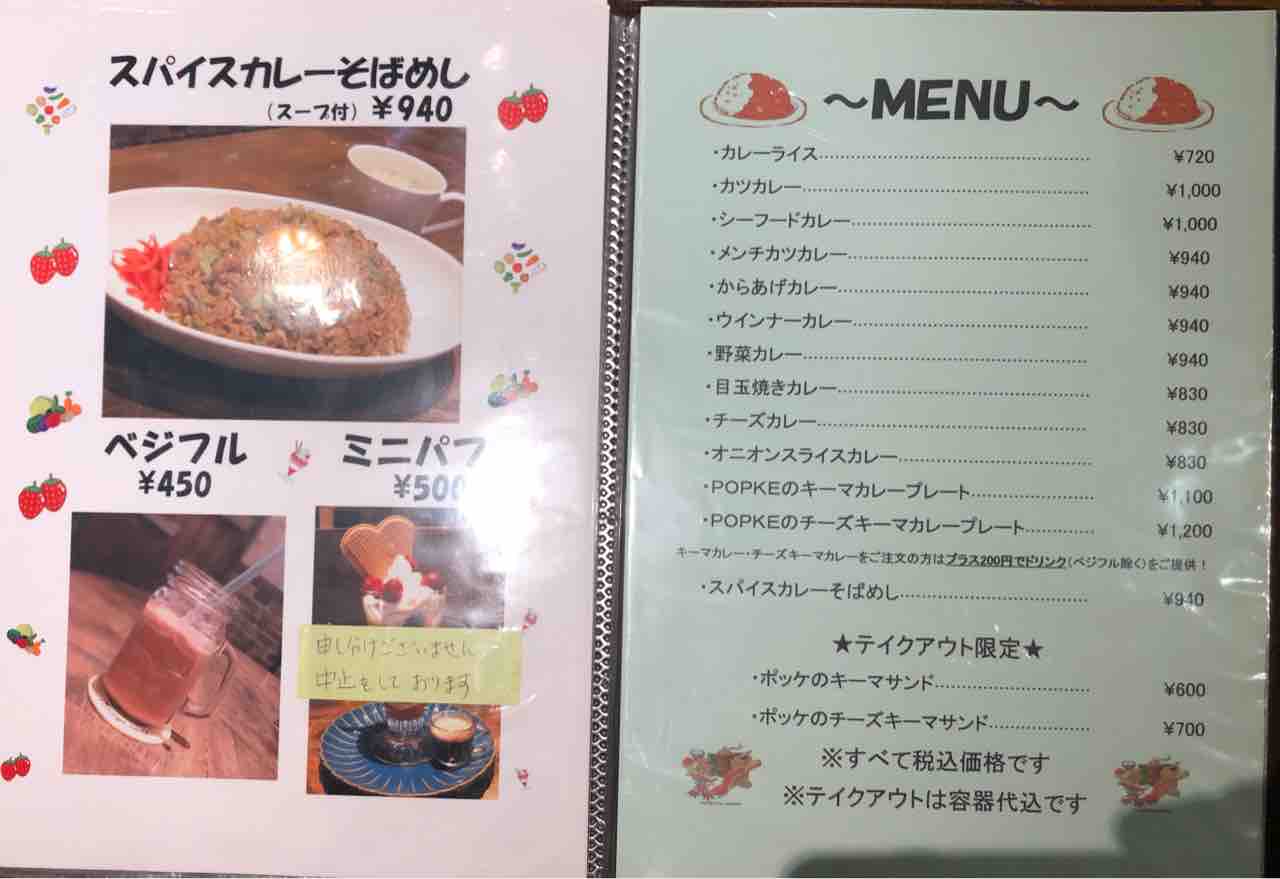 スパイスカレーそばめし
（スープ付）￥940
ベジフル
￥450
ミニパフ
￥500
申し分けございません
中止をしております
～MENU～
・カレーライス…………………………………… ¥720
・カツカレー…………………………………… ¥1,000
・シーフードカレー…………………………………… ¥1,000
・メンチカツカレー…………………………………… ¥940
・からあげカレー…………………………………… ¥940
・ウインナーカレー…………………………………… ¥940
・野菜カレー…………………………………… ¥940
・目玉焼きカレー…………………………………… ¥830
・チーズカレー…………………………………… ¥830
・オニオンスライスカレー…………………………… ¥830
・POPKEのキーマカレープレート………………… ¥1,100
・POPKEのチーズキーマカレープレート………… ¥1,200
キーマカレー・チーズキーマカレーをご注文の方はプラス200円でドリンク（ベジフル除く）をご提供！
・スパイスカレーそばめし…………………………… ¥940
★テイクアウト限定★
・ポッケのキーマサンド……………………… ¥600
・ポッケのチーズキーマサンド……………… ¥700
※すべて税込価格です
※テイクアウトは容器代込です